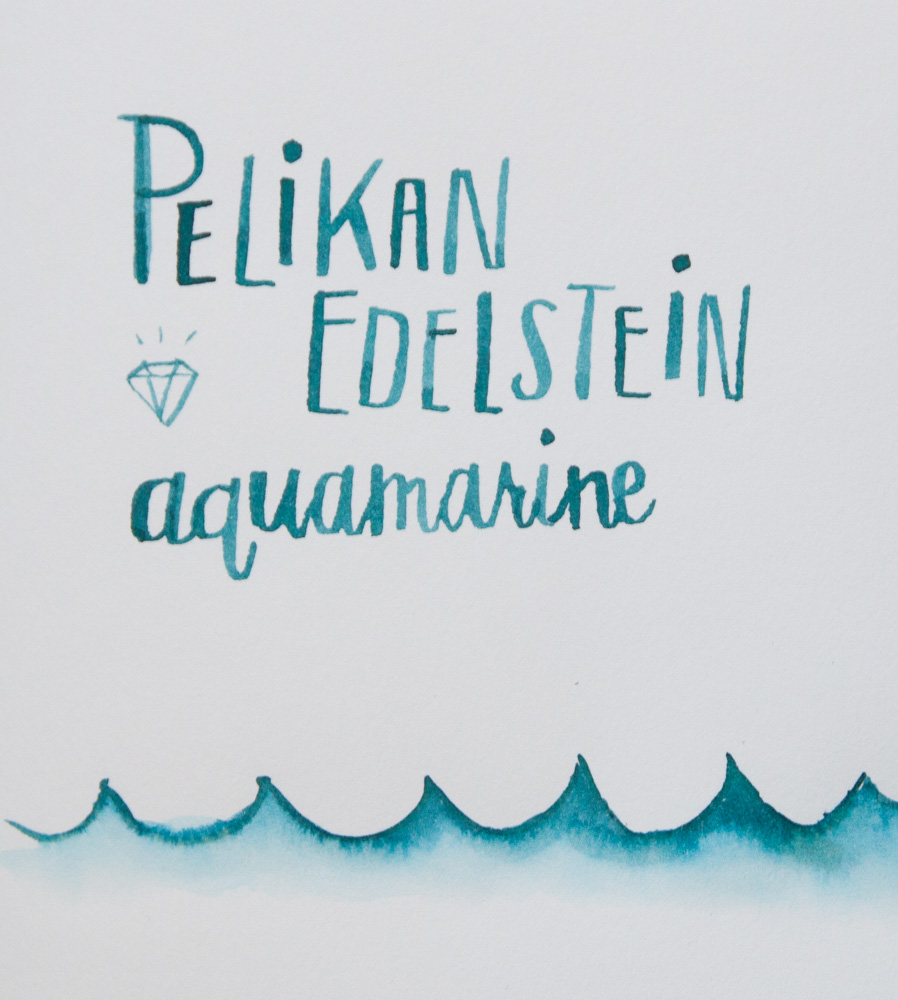 PELiKAN
EDELSTEiN
aquamarine